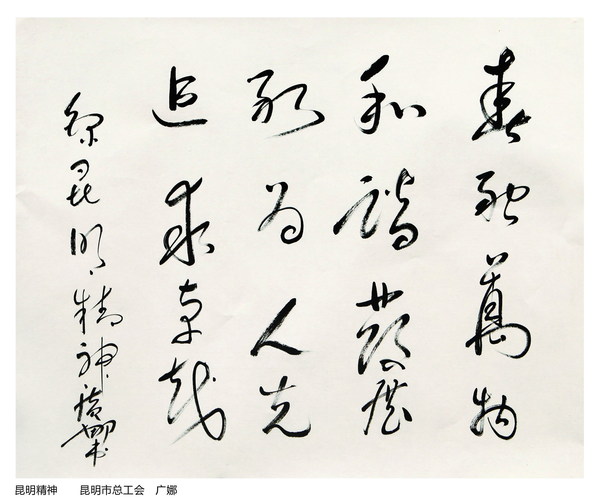 春融萬物
和諧發展
敢为人先
追求卓越
昆明精神 廣娜书
昆明精神 昆明市总工会 广娜